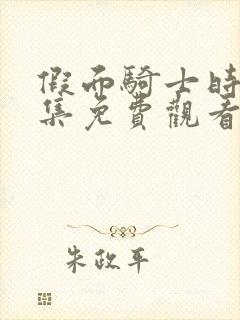 假面騎士時
集免費觀看
朱政平